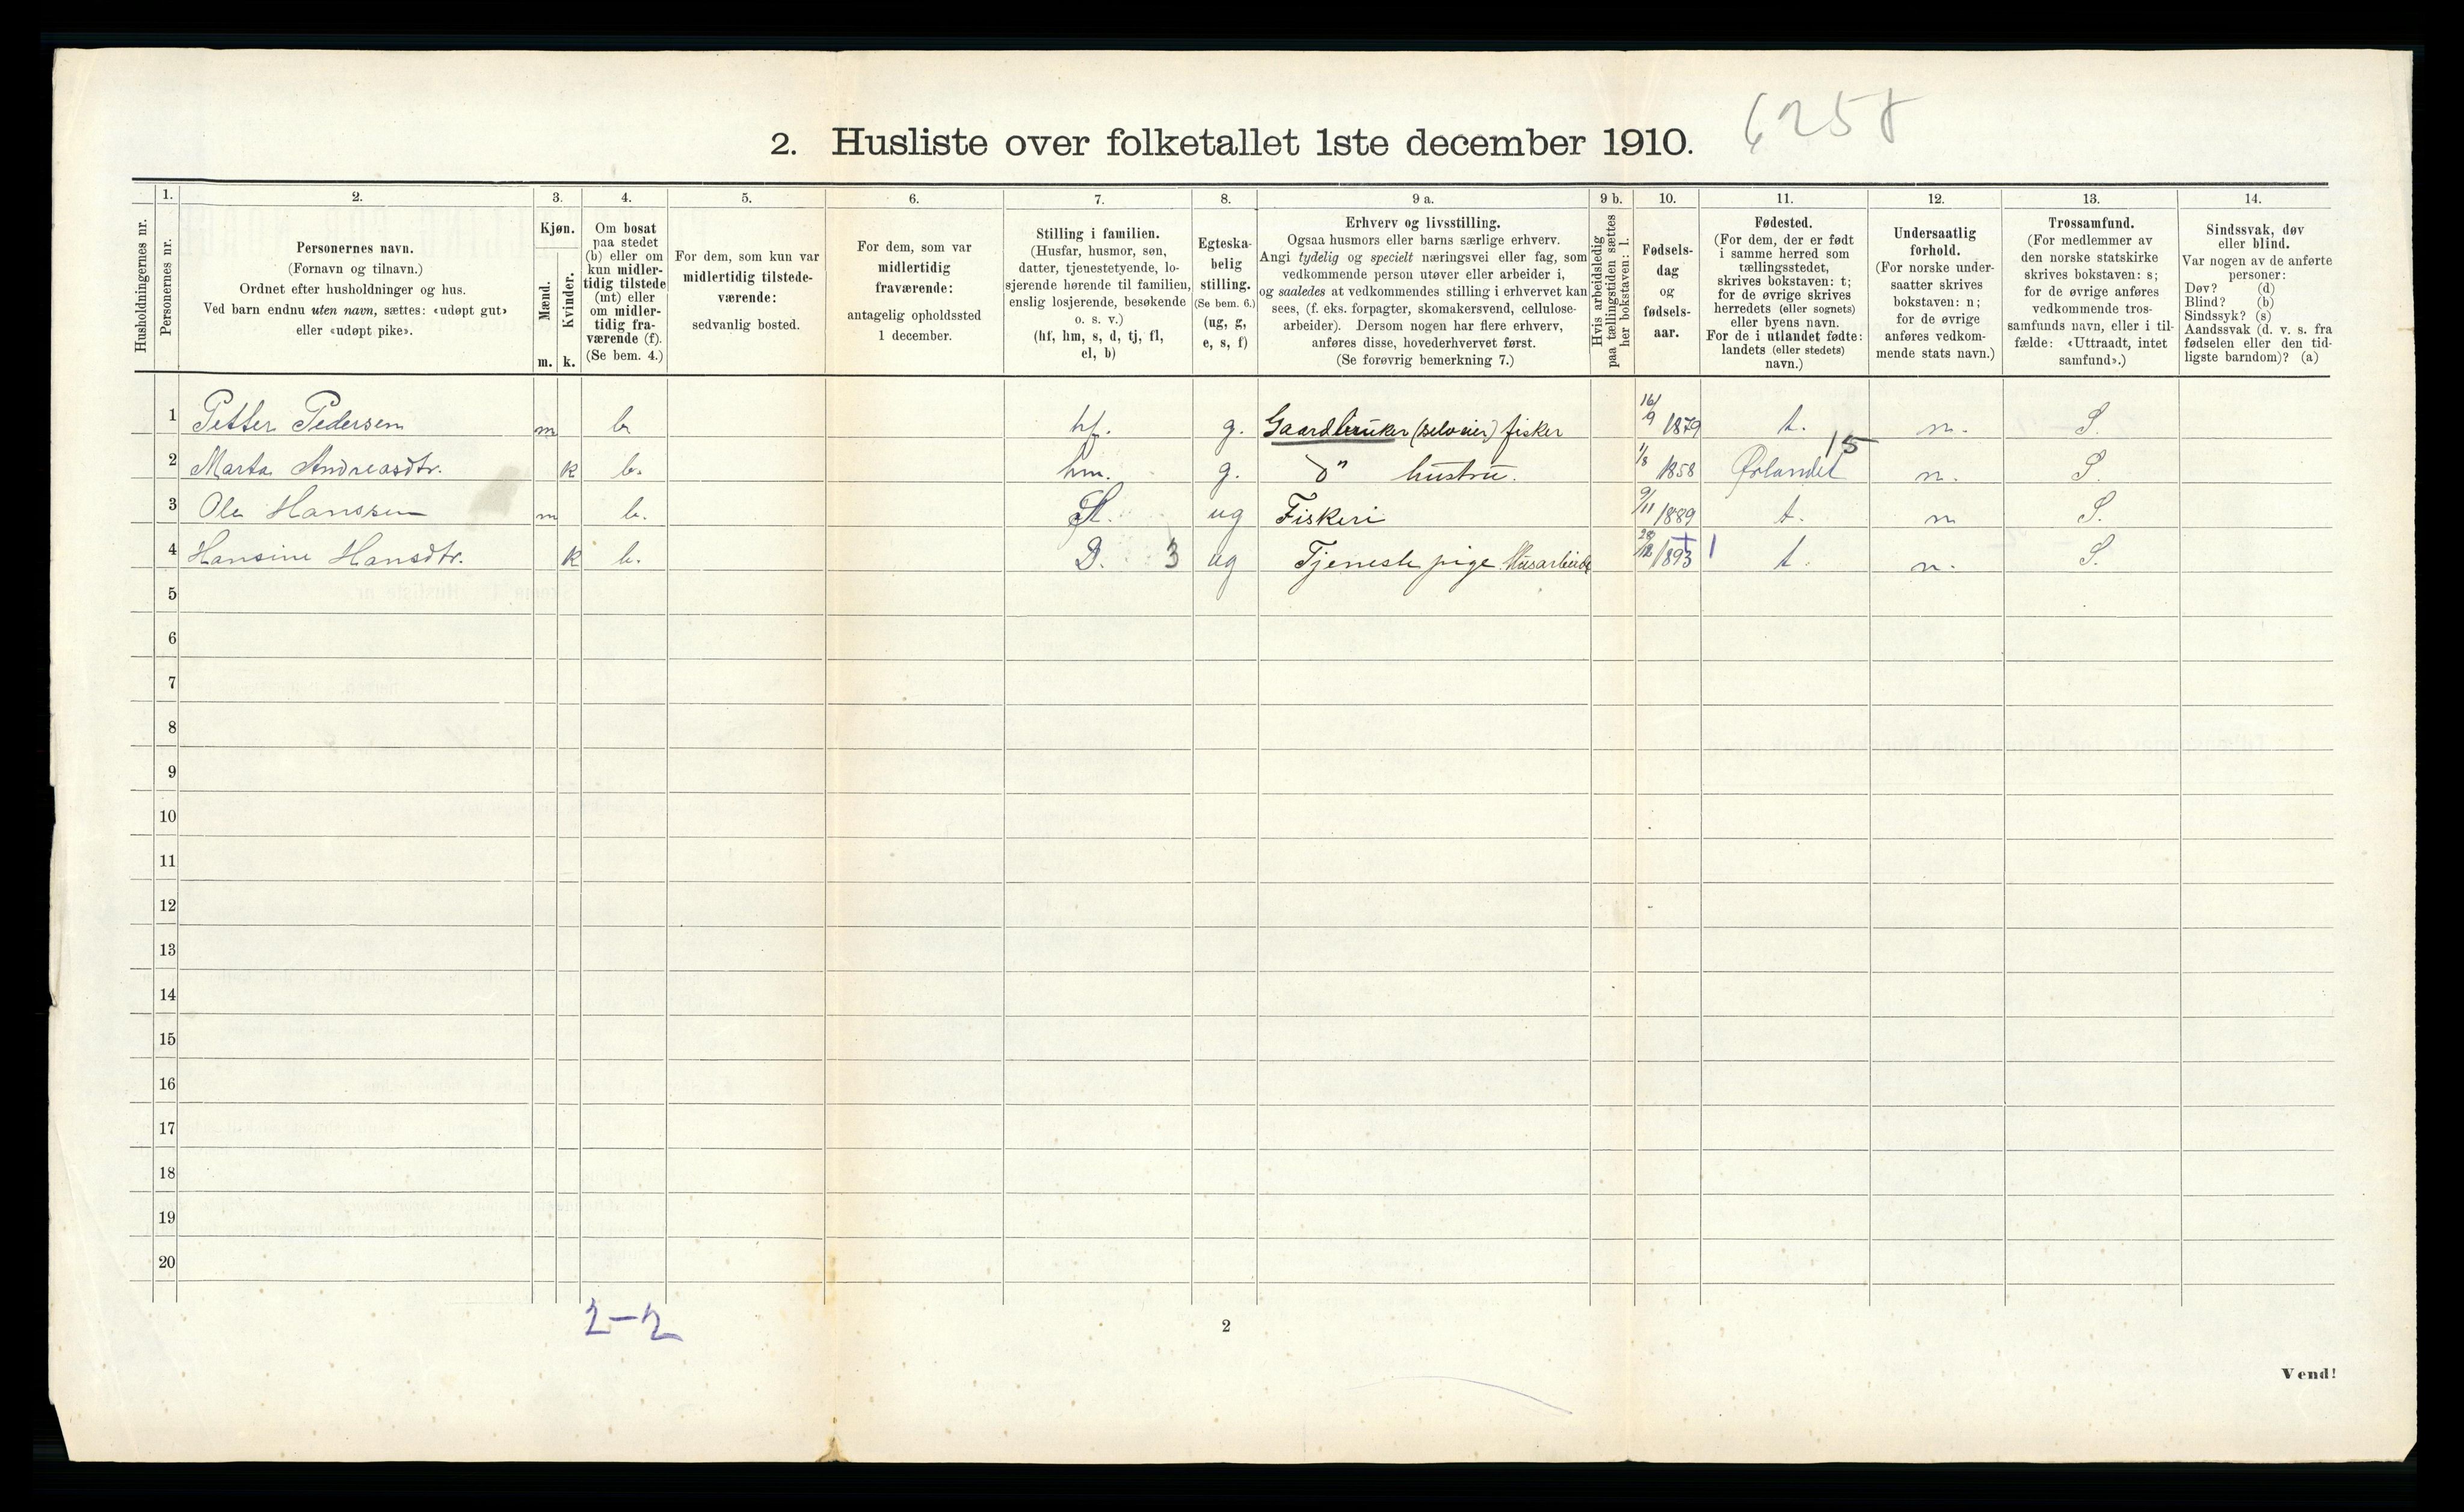 6258
2. Husliste over folketallet 1ste december 1910.
Husholdningernes nr.
1.
Personernes nr.
2.
Personernes navn.
(Fornavn og tilnavn.)
Ordnet efter husholdninger og hus.
Ved barn endnu uten navn, sættes: «udøpt gut»
eller «udøpt pike».
3.
Kjøn.
Mænd.
Kvinder.
m. k.
4.
Om bosat
paa stedet
(b) eller om
kun midler-
tidig tilstede
(mt) eller
om midler-
tidig fra-
værende (f).
(Se bem. 4.)
5.
For dem, som kun var
midlertidig tilstede-
værende:
sedvanlig bosted.
6.
For dem, som var
midlertidig
fraværende:
antagelig opholdssted
1 december.
7.
Stilling i familien.
(Husfar, husmor, søn,
datter, tjenestetyende, lo-
sjerende hørende til familien,
enslig losjerende, besøkende
o. s. v.)
(hf, hm, s, d, tj, fl,
el, b)
8.
Egteska-
belig
stilling.
(Se bem. 6.)
(ug, g,
e, s, f)
9 a.
Erhverv og livsstilling.
Ogsaa husmors eller barns særlige erhverv.
Angi tydelig og specielt næringsvei eller fag, som
vedkommende person utøver eller arbeider i,
og saaledes at vedkommendes stilling i erhvervet kan
sees, (f. eks. forpagter, skomakersvend, cellulose-
arbeider). Dersom nogen har flere erhverv,
anføres disse, hovederhvervet først.
(Se forøvrig bemerkning 7.)
9 b.
Hvis arbeidsledig
paa tællingstiden sættes
her bokstaven: l.
10.
Fødsels-
dag
og
fødsels-
aar.
11.
Fødested.
(For dem, der er født
i samme herred som
tællingsstedet,
skrives bokstaven: t;
for de øvrige skrives
herredets (eller sognets)
eller byens navn.
For de i utlandet fødte:
landets (eller stedets)
navn.)
12.
Undersaatlig
forhold.
(For norske under-
saatter skrives
bokstaven: n;
for de øvrige
anføres vedkom-
mende stats navn.)
13.
Trossamfund.
(For medlemmer av
den norske statskirke
skrives bokstaven: s;
for de øvrige anføres
vedkommende tros-
samfunds navn, eller i til-
fælde: «Uttraadt, intet
samfund».)
14.
Sindssvak, døv
eller blind.
Var nogen av de anførte
personer:
Døv? (d)
Blind? (b)
Sindssyk? (s)
Aandssvak (d. v. s. fra
fødselen eller den tid-
ligste barndom)? (a)
1 Petter Pedersen m b hf. g. Gaardbruker (selveier) fisker 16/9 1879 t. n. S.
15
2 Marta Andreasdtr. k b. hm. g. do hustru. 1/8 1858 Ørlandet n. S.
3 Ole Hanssen m b. Sl. ug Fiskeri 9/11 1889 t. n S.
4 Hansine Hansdtr. k b. D. 3 ug Tjeneste pige Husarbeide 28/12 1893 + 1 t. n. S.
5
6
7
8
9
10
11
12
13
14
15
16
17
18
19
20
2-2
2
Vend!